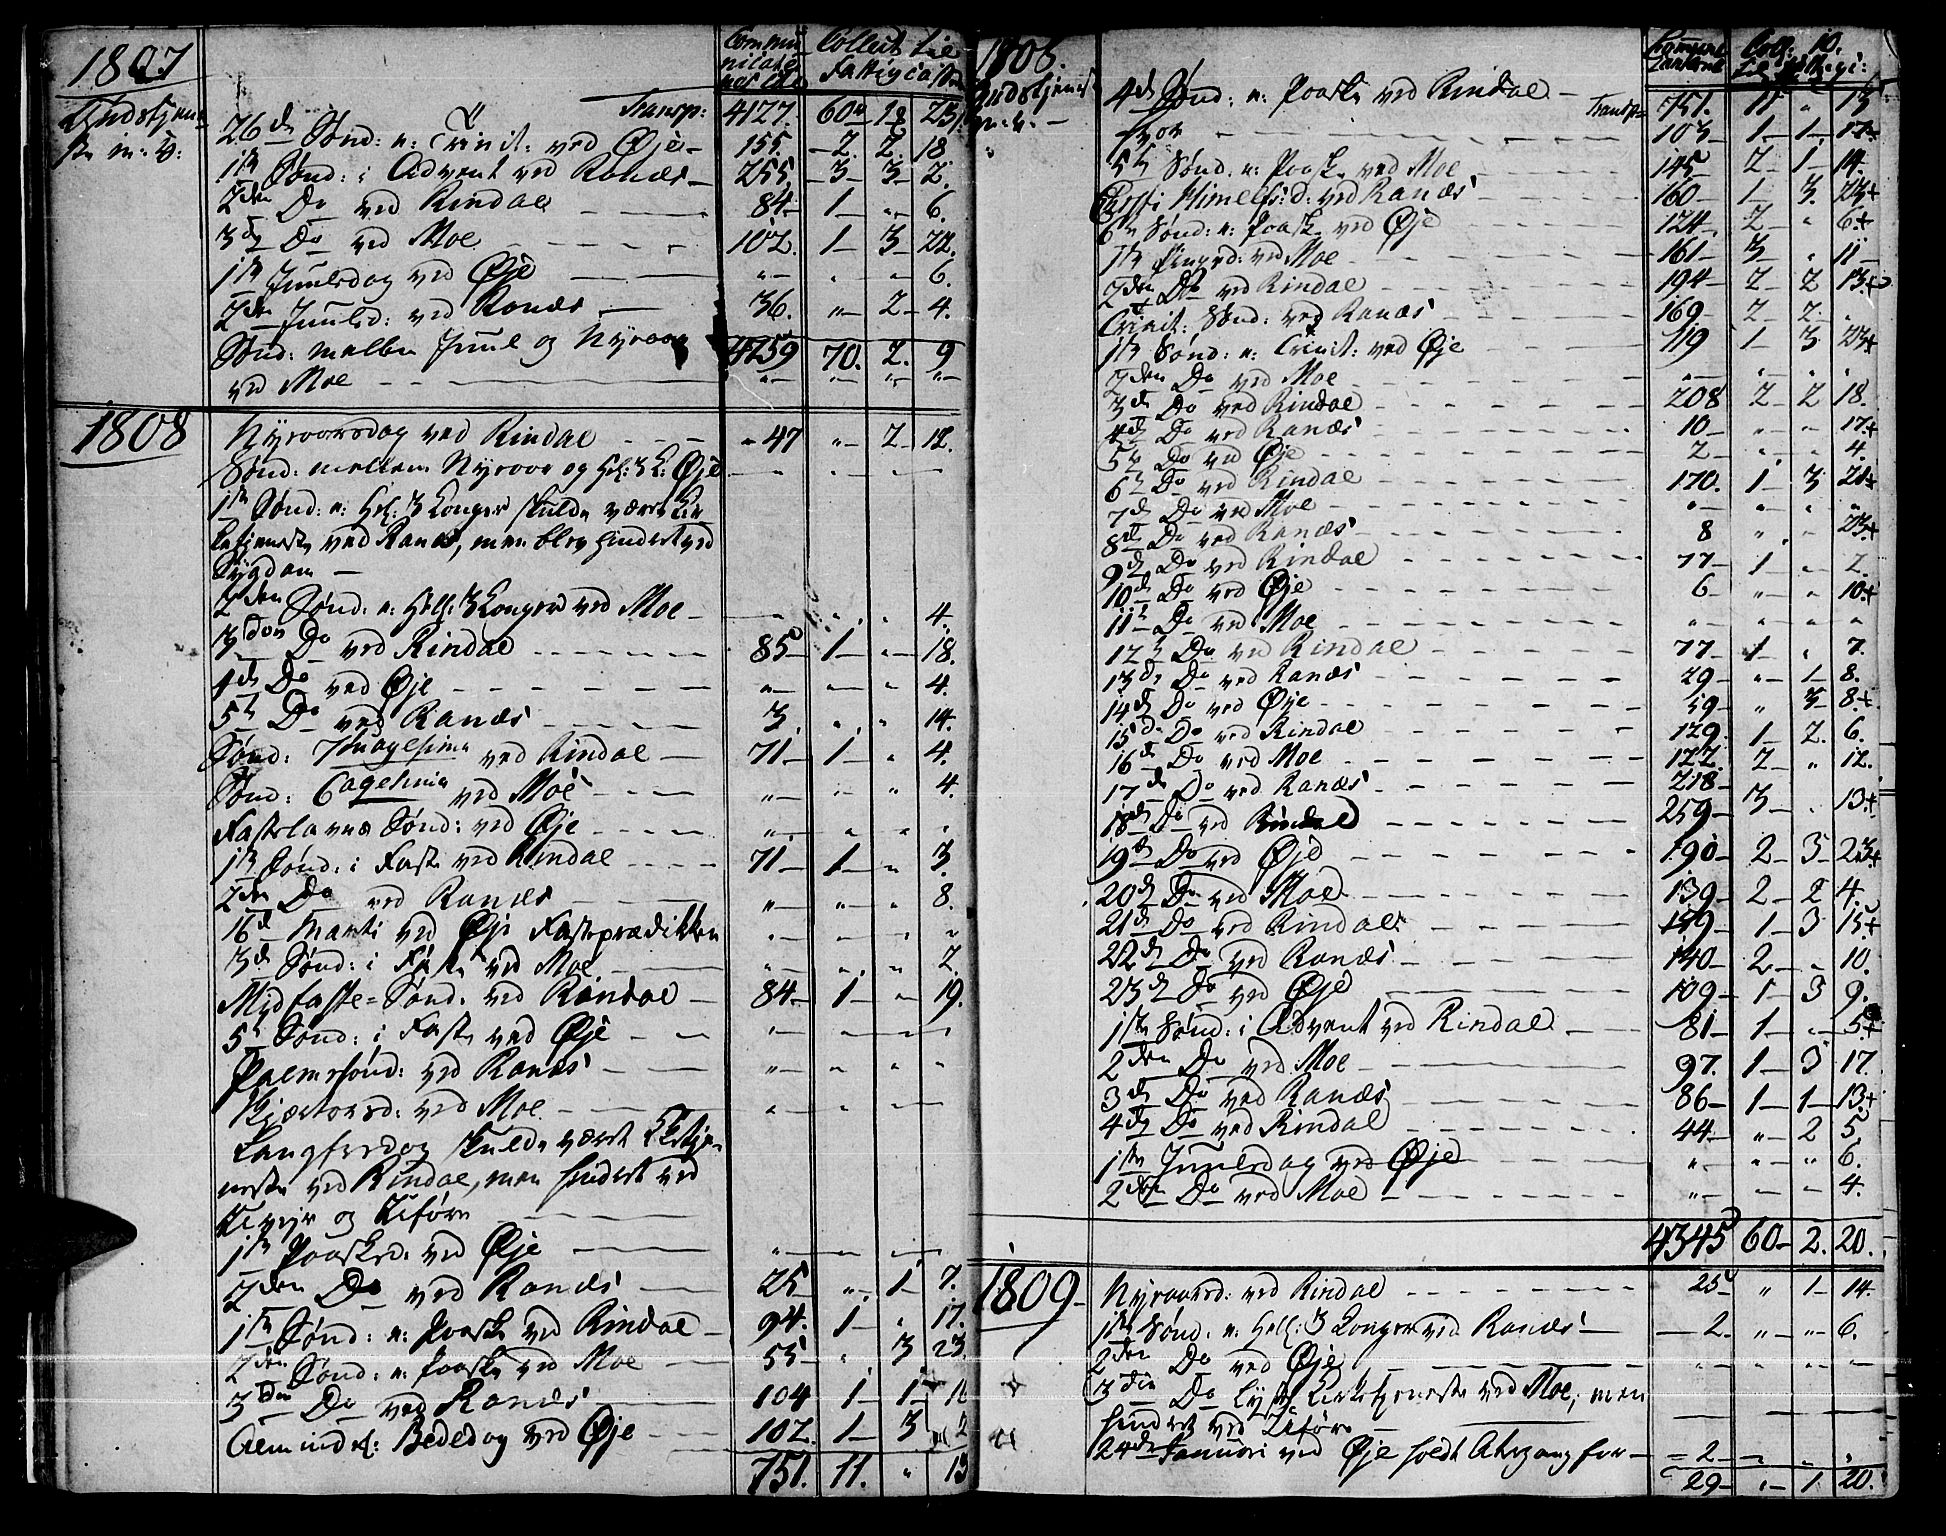 1807
Gudstjene-
ste m: v:
Commu-
nicant
Collect til
Fattigcassen
Transp: 4127. 60 18 23
26de Sønd: e: Trinit: ved Øje 155. 2. 2. 18
1ste Sønd: i Advent ved Ranæs 255 3 3 2.
2den Do ved Rindal 84 1 " 6.
3de Do ved Moe 102. 1 3 22.
1ste Juulsdag ved Øje " " " 6.
2den Juuld: ved Ranæs 36. " 2 4.
Sønd: mellem Juul og Nyeaar 4259 70. 2. 9
ved Moe " " " "
1808
Nyeaarsdag ved Rindal 47 " 2 12.
Sønd: mellem Nyeaar og Hel: 3 K: Øje
1ste Sønd: e: Hel: 3 Konger skulde været Kir-
ketjeneste ved Ranæs, men blev hindret ved
Sygdom
2den Sønd: e: Hell: 3 Konger ved Moe " " 4.
3den Do ved Rindal 85 1 " 18.
4de Do ved Øje " " " 4.
5te Do ved Ranæs 3. " " 14.
Sønd: 7tuagesima ved Rindal 71 1 " 4.
Sønd: 6agesima ved Moe " " " 4.
Fastelavns Sønd: ved Øje " " " "
1ste Sønd: i Faste ved Rindal 71 1 " 3.
2den Do ved Ranæs " " " 8.
16de Marti ved Øje Fasteprædikken " " " "
3de Sønd: i Faste ved Moe " " " 2.
Midfaste-Sønd: ved Rindal 84 1 " 19.
5te Sønd: i Faste ved Øje
Palmesønd: ved Ranæs " " " "
Skjærtorsd: ved Moe
Langfredag skulde været Kirketje-
neste ved Rindal, men hindret ved
Uvejr og Uføre
1ste Paaskd: ved Øje
2den Do ved Ranæs 25 " 1 7.
1ste Sønd: e: Paaske ved Rindal 94. 1 " 17.
2den Sønd: e: Paaske ved Moe 55 " 3 23.
3die Do ved Ranæs 104 1 1
Almindel: Bededag ved Øje 102. 1 3
751. 11. " 13
1808.
Gudstjenest
m: v:
4de Sønd: e: Paaske ved Rindal Transp 751. 11 " 13
5te Sønd: e: Paaske ved Moe 145 2 1 14.
Christi Himelfs: d: ved Ranæs 160 1 3. 23+
6te Sønd: e: Paaske ved Øje 124. 2 " 6.+
1ste Pinsed: ved Moe 161 3 " 11
2den Do ved Rindal 194 2 2 13+
Trinit: Sønd: ved Ranæs 169 2 2. "
1ste Sønd: e: Trinit: ved Øje 119 1 3 23+
2den Do ved Moe " " " "
3de Do ved Rindal 208 2 2 18.
4de Do ved Ranæs 10 " " 17.+
5te Do ved Øje 2 " " 4.
6te Do ved Rindal 170. 1 3 21+
7de Do ved Moe " " " "
8de Do ved Ranæs 8 " " 23+
9de Do ved Rindal 77 1 " 2.
10de Do ved Øje 6 " " 10+
11te Do ved Moe " " " "
12te Do ved Rindal 77 1 " 7.
13de Do ved Ranæs 29 " 1 8.
14de Do ved Øje 59 " 3 8+
15de Do ved Rindal 129. 1 2. 6.
16de Do ved Moe 122. 2 " 12.
17de Do ved Ranæs 218
18de Do ved Rindal 259 3 " 13+
19de Do ved Øje 190 2 3 23+
20de Do ved Moe 139 2 2 4.
21de Do ved Rindal 1 3 15+
22de Do ved Ranæs 140 2 " 10.
23de Do ved Øje 109 1 3 9.
1ste Sønd: i Advent ved Rindal 81 1 " 5+
2den Do ved Moe 97. 1 3 17.
3de Do ved Ranæs 86 1 1 13+
4de Do ved Rindal 44 " 2 5
1ste Juulsdag ved Øje " " " 6.
2den Do ved Moe 4.
4345 60 2. 20.
1809
Nyeaarsd: ved Rindal 25 " 1 14.
1ste Sønd: e: Hell: 3 Konger ved Ranæs 2. " " 6.
2den Do ved Øje
3die Do lyst Kirketjeneste ved Moe, men
hindret ved Uføre
24de Januari ved Øje holdt 2
29 " 1 20.